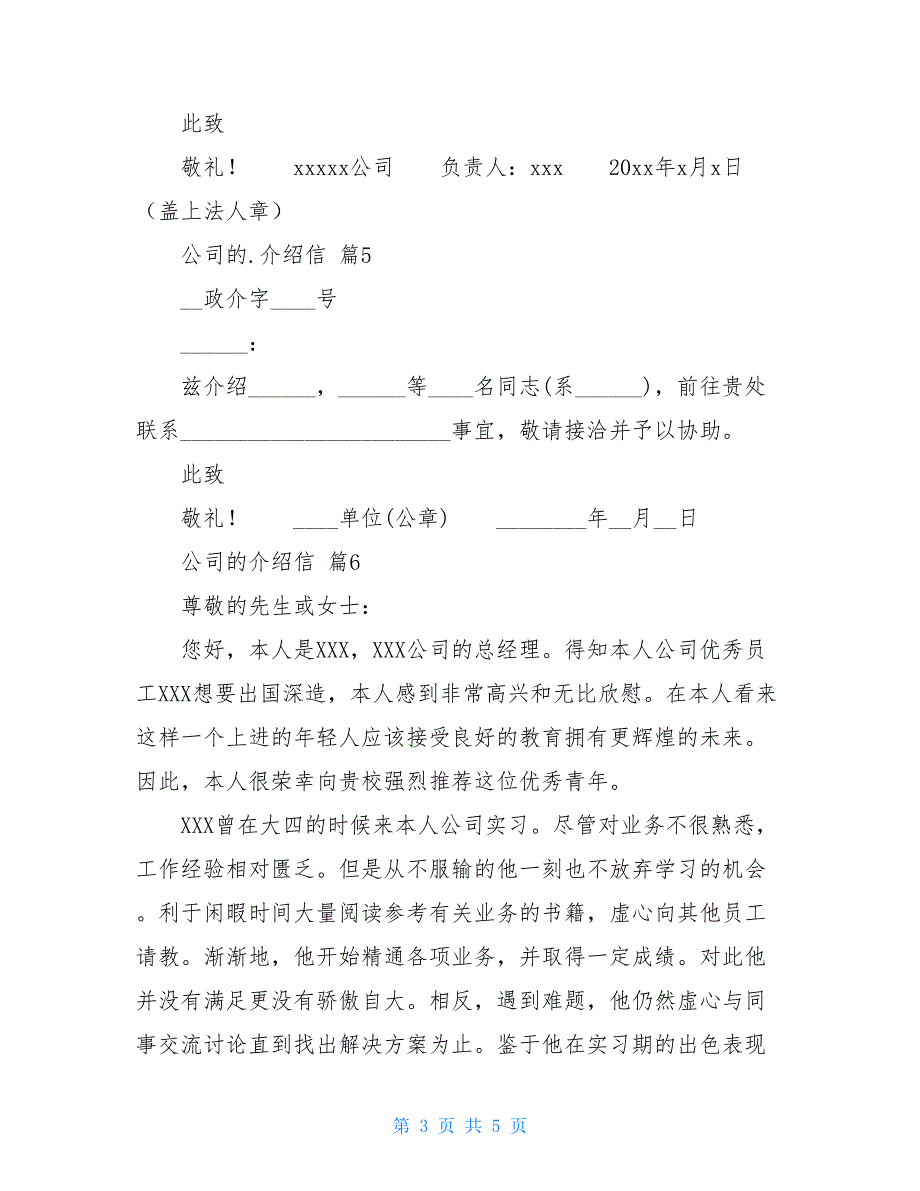 此致
敬礼！ xxxxx公司 负责人：xxx 20xx年x月x日
（盖上法人章）
公司的.介绍信 篇5
__政介字____号
______：
兹介绍______，______等____名同志(系______)，前往贵处
联系________________________事宜，敬请接洽并予以协助。
此致
敬礼！ ____单位(公章) ________年__月__日
公司的介绍信 篇6
尊敬的先生或女士：
您好，本人是XXX，XXX公司的总经理。得知本人公司优秀员
工XXX想要出国深造，本人感到非常高兴和无比欣慰。在本人看来
这样一个上进的年轻人应该接受良好的教育拥有更辉煌的未来。
因此，本人很荣幸向贵校强烈推荐这位优秀青年。
XXX曾在大四的时候来本人公司实习。尽管对业务不很熟悉，
工作经验相对匮乏。但是从不服输的他一刻也不放弃学习的机会
。利于闲暇时间大量阅读参考有关业务的书籍，虚心向其他员工
请教。渐渐地，他开始精通各项业务，并取得一定成绩。对此他
并没有满足更没有骄傲自大。相反，遇到难题，他仍然虚心与同
事交流讨论直到找出解决方案为止。鉴于他在实习期的出色表现
第 3 页 共 5 页